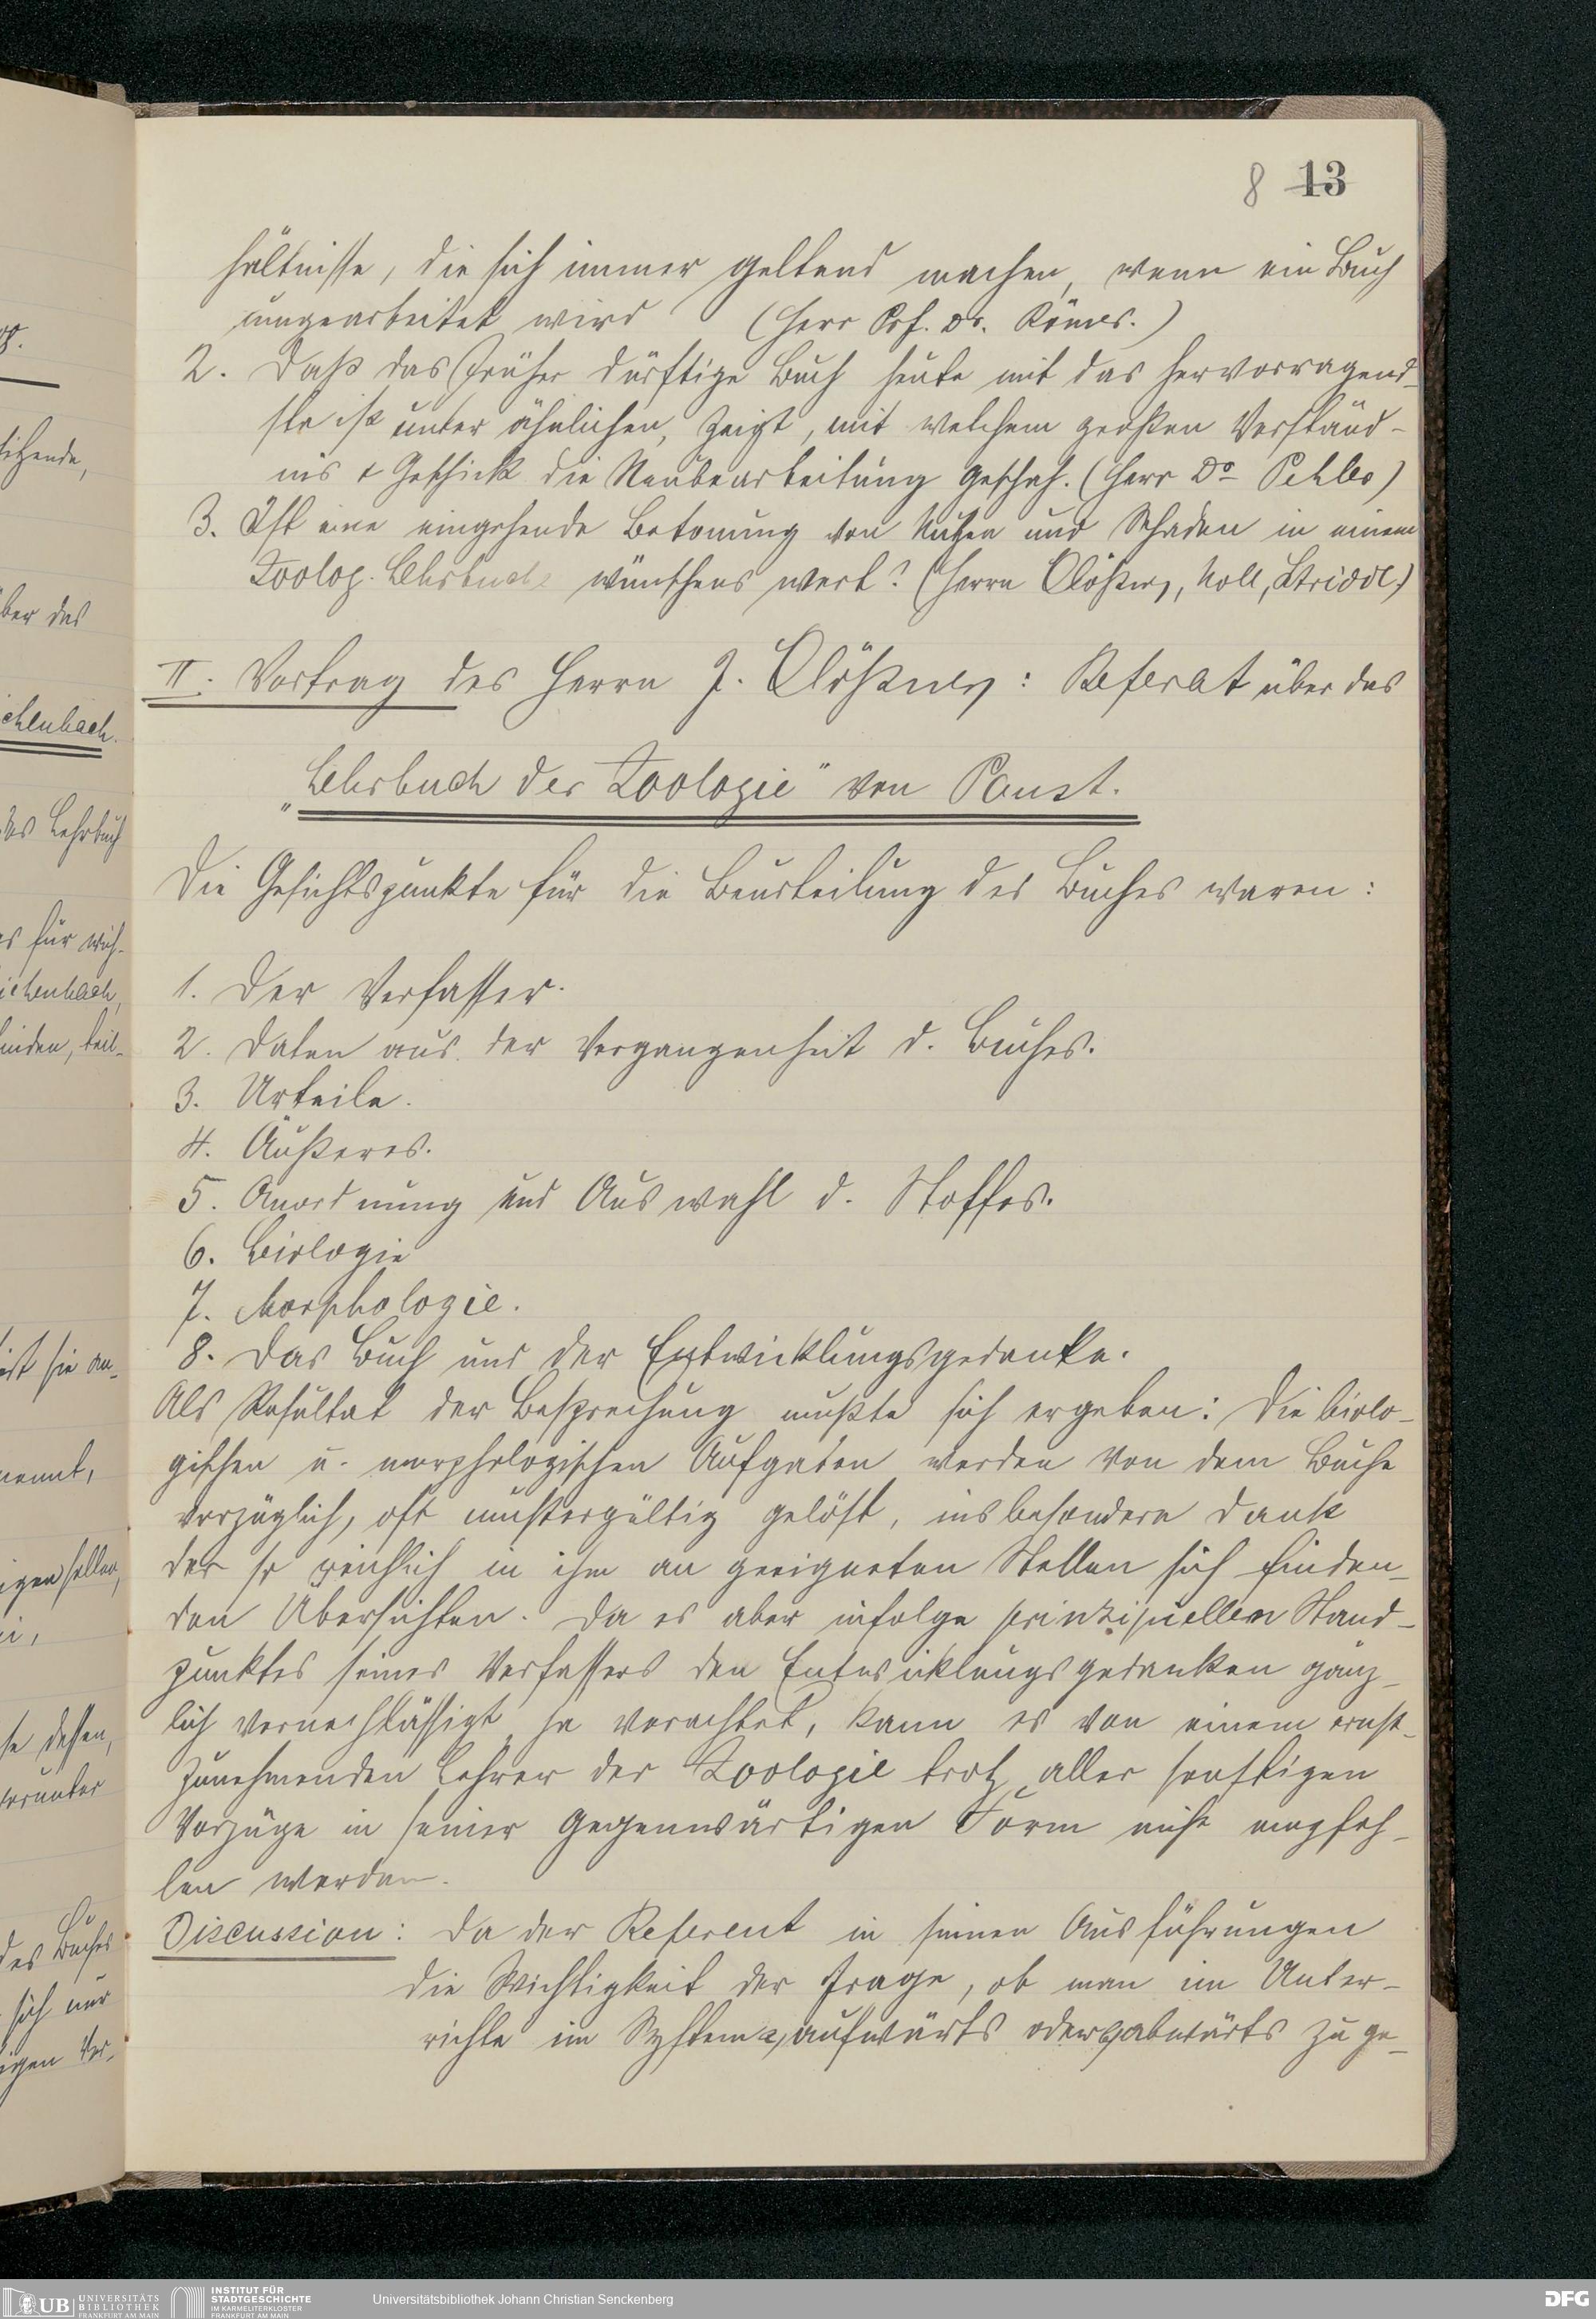 8 13
hältnisse, die sich immer geltend machen, wenn ein Buch
umgearbeitet wird (Herr Prf. Dr. Römer.)
2. Daß das früher dürftige Buch heute mit das hervorragend-
ste ist unter ähnlichen, zeigt, mit welchem großen Verständ-
nis & Geschick die Neubearbeitung geschah. (Herr Dr
3. Ist eine eingehende Betonung von Nutzen und Schaden in einem
Zoolog. Lehrbuche wünschens wert? (Herrn Noll,
II. Vortrag des Herrn J. : Referat über das
„Lehrbuch der Zoologie" von Paust.
Die Gesichtspunkte für die Beurteilung des Buches waren:
1. Der Verfasser.
2. Daten aus der Vergangenheit d. Buches.
3. Urteile.
4. Äußeres.
5. Anordnung und Auswahl d. Stoffes.
6. Biologie
7. Morphologie.
8. Das Buch und der Entwicklungsgedanke.
Als Resultat der Besprechung mußte sich ergeben: Die biolo-
gischen u. morphologischen Aufgaben werden von dem Buche
vorzüglich, oft mustergültig gelöst, insbesondere dank
der so reichlich in ihm an geeigneten Stellen sich finden-
den Übersichten. Da es aber infolge prinzipuellen Stand-
punktes seines Verfassers den Entwicklungsgedanken gänz-
lich vernachlässigt, ja verachtet, kann es von einem ernst-
zunehmenden Lehrer der Zoologie trotz aller sonstigen
Vorzüge in seiner gegenwärtigen Form nicht empfoh-
len werden.
Discussion: Da der Referent in seinen Ausführungen
die Wichtigkeit der Frage, ob man im Unter-
richte im System a, aufwärts oder b, abwärts zu ge-
UB UNIVERSITÄTS BIBLIOTHEK FRANKFURT AM MAIN
INSTITUT FÜR STADTGESCHICHTE IM KARMELITERKLOSTER FRANKFURT AM MAIN
Universitätsbibliothek Johann Christian Senckenberg
DFG